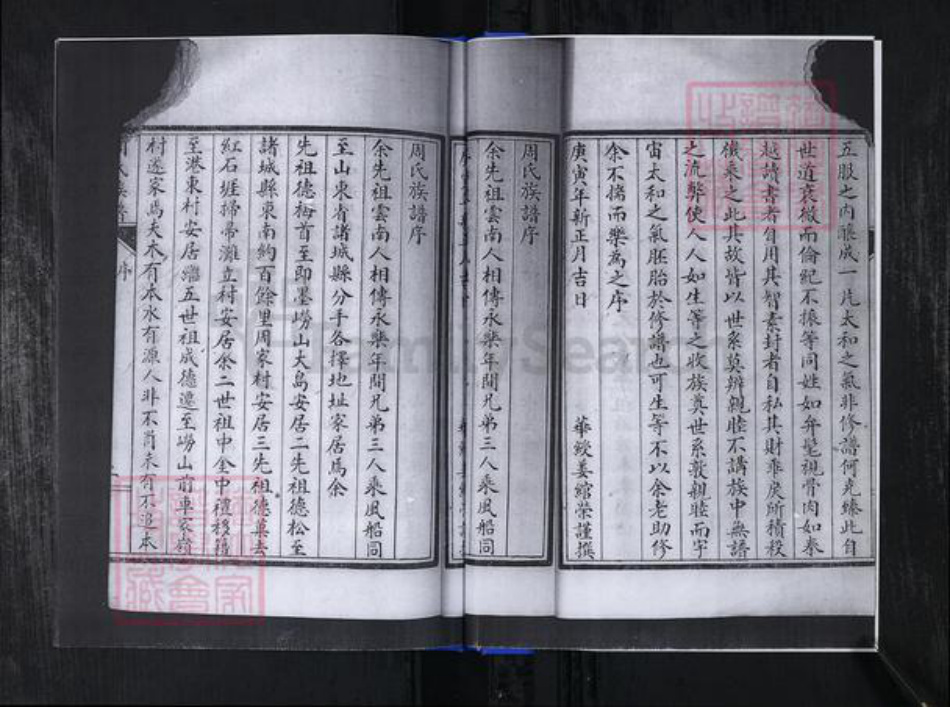 五服之內釀成一片太和之氣非修譜何克臻此自
世道衰微而倫紀不振等同姓如弁髦視骨肉如秦
越讀書者自用其智素封者自私其財乖戾所積殺
機乘之此其故皆以世系莫辨親睦不講族中無譜
之流弊使人人如生等之收族奠世系敦親睦而宇
宙太和之氣胚胎於修譜也可生等不以余老助修
余不揣而樂為之序
庚寅年新正月吉日
華綬姜綰榮謹撰
周氏族譜序
余先祖雲南人相傳永樂年間兄弟三人乘風船同
周氏族譜序
余先祖雲南人相傳永樂年間兄弟三人乘風船同
至山東省諸城縣分手各擇地址家居焉余
先祖德梅首至即墨嶗山大島安居二先祖德松至
諸城縣東南約百餘里周家村安居三先祖德真去
紅石崖掃帚灘立村安居余二世祖中奎中禮移
至港東村安居繼五世祖成德遷至嶗山前車家嶺
村遂家焉夫木有本水有源人非不肖未有不追本
氏族譜
序